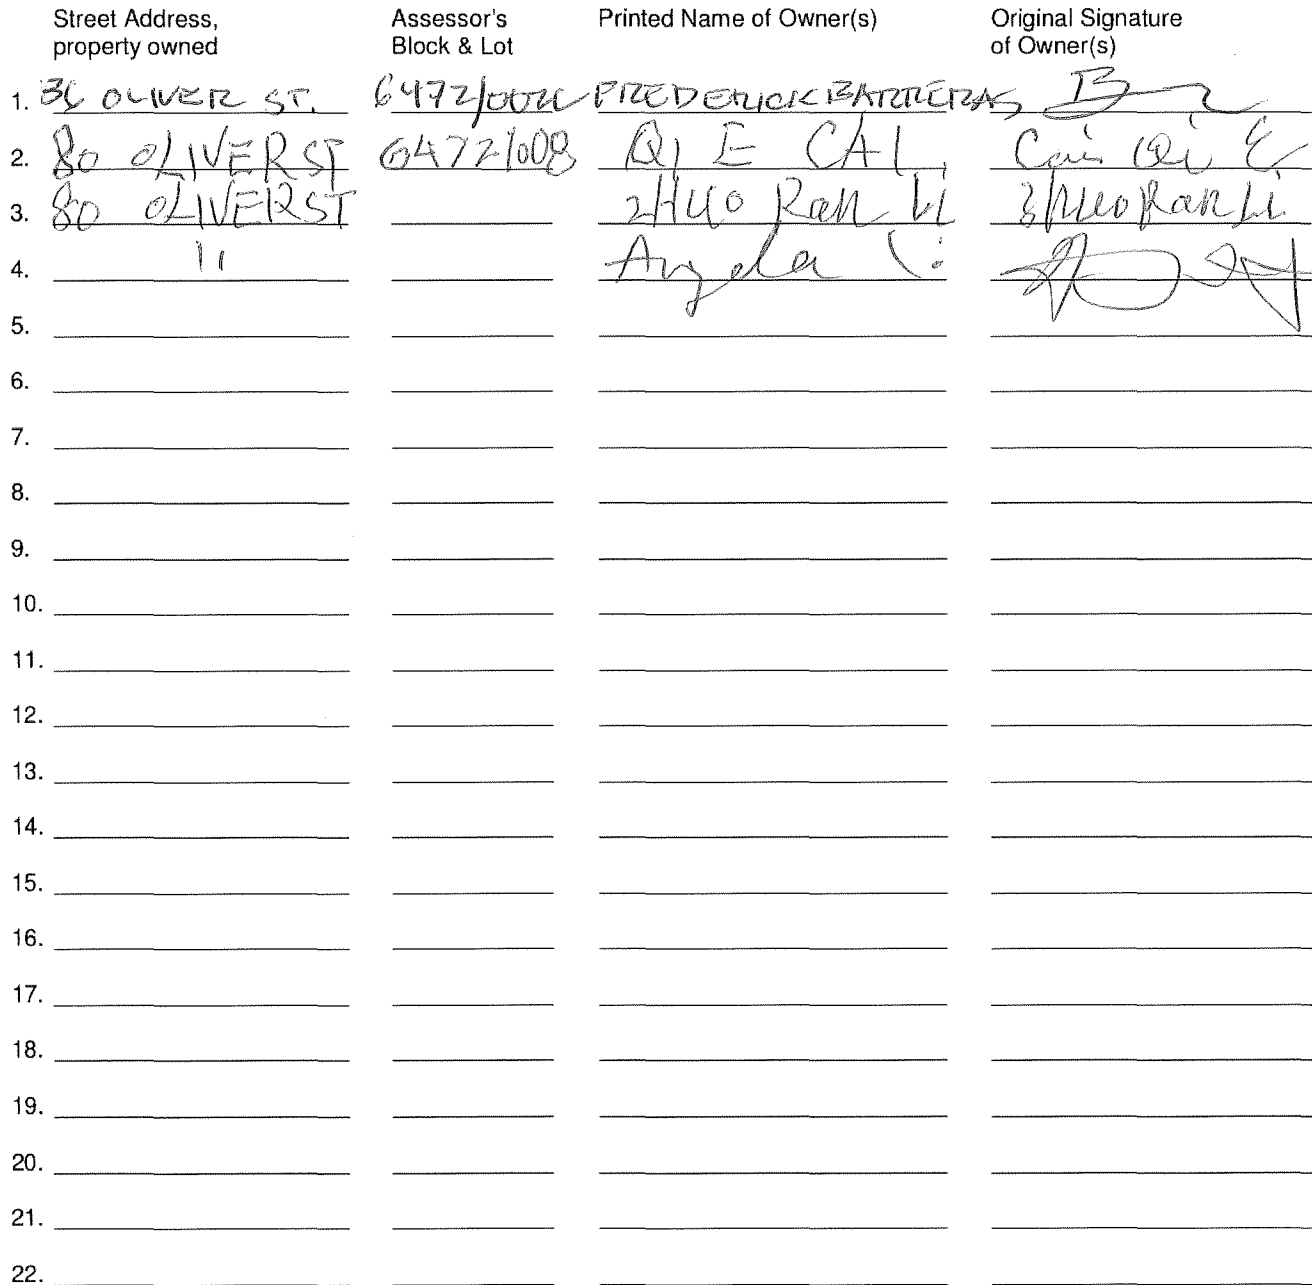 Street Address, property owned Assessor's Block & Lot Printed Name of Owner(s) Original Signature of Owner(s)
1. 36 OLIVER ST. 6472/ FREDERICK BARRERAS
2. 80 OLIVER ST 6472/008 QI E CAI Cai Qi E
3. 80 OLIVER ST ZHUO Ran Li ZHuo Ran Li
4. " Angela Li
5.
6.
7.
8.
9.
10.
11.
12.
13.
14.
15.
16.
17.
18.
19.
20.
21.
22.